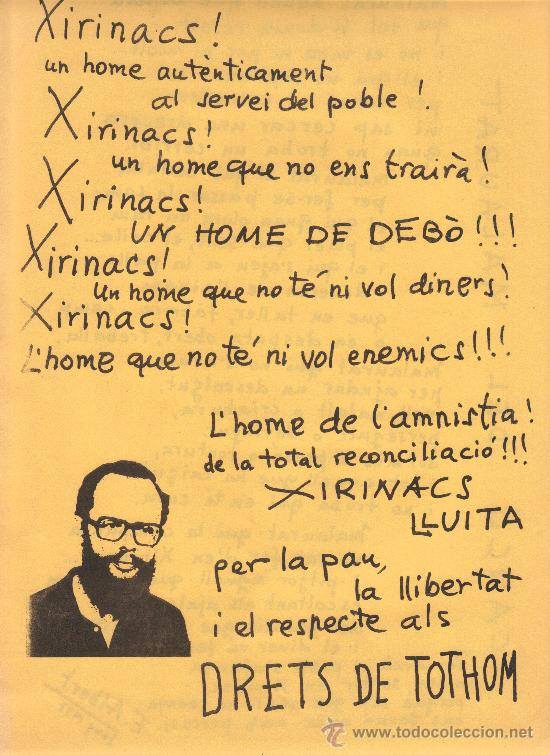 Xirinacs!
un home autènticament
al servei del poble!
Xirinacs!
un home que no ens trairà!
Xirinacs!
UN HOME DE DEBÒ!!!
Xirinacs!
Un home que no té ni vol diners!
Xirinacs!
L'home que no té ni vol enemics!!!
L'home de l'amnistia!
de la total reconciliació!!!
XIRINACS
LLUITA
per la pau,
la llibertat
i el respecte als
DRETS DE TOTHOM
www.todocoleccion.net